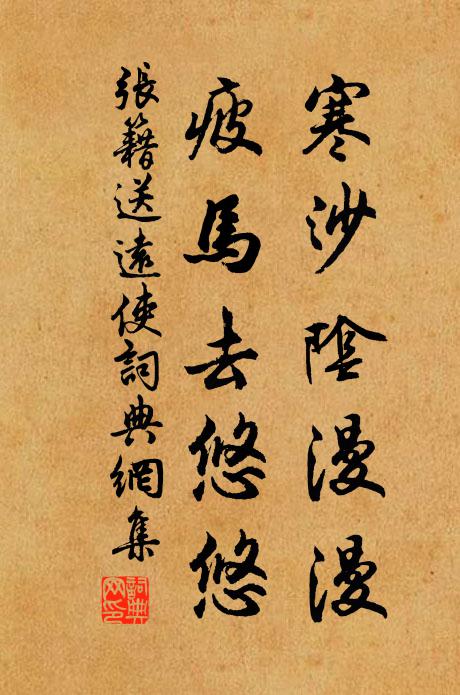 寒沙陰漫漫
疲馬去悠悠
張籍送遠使詞典網集
詞典
网印